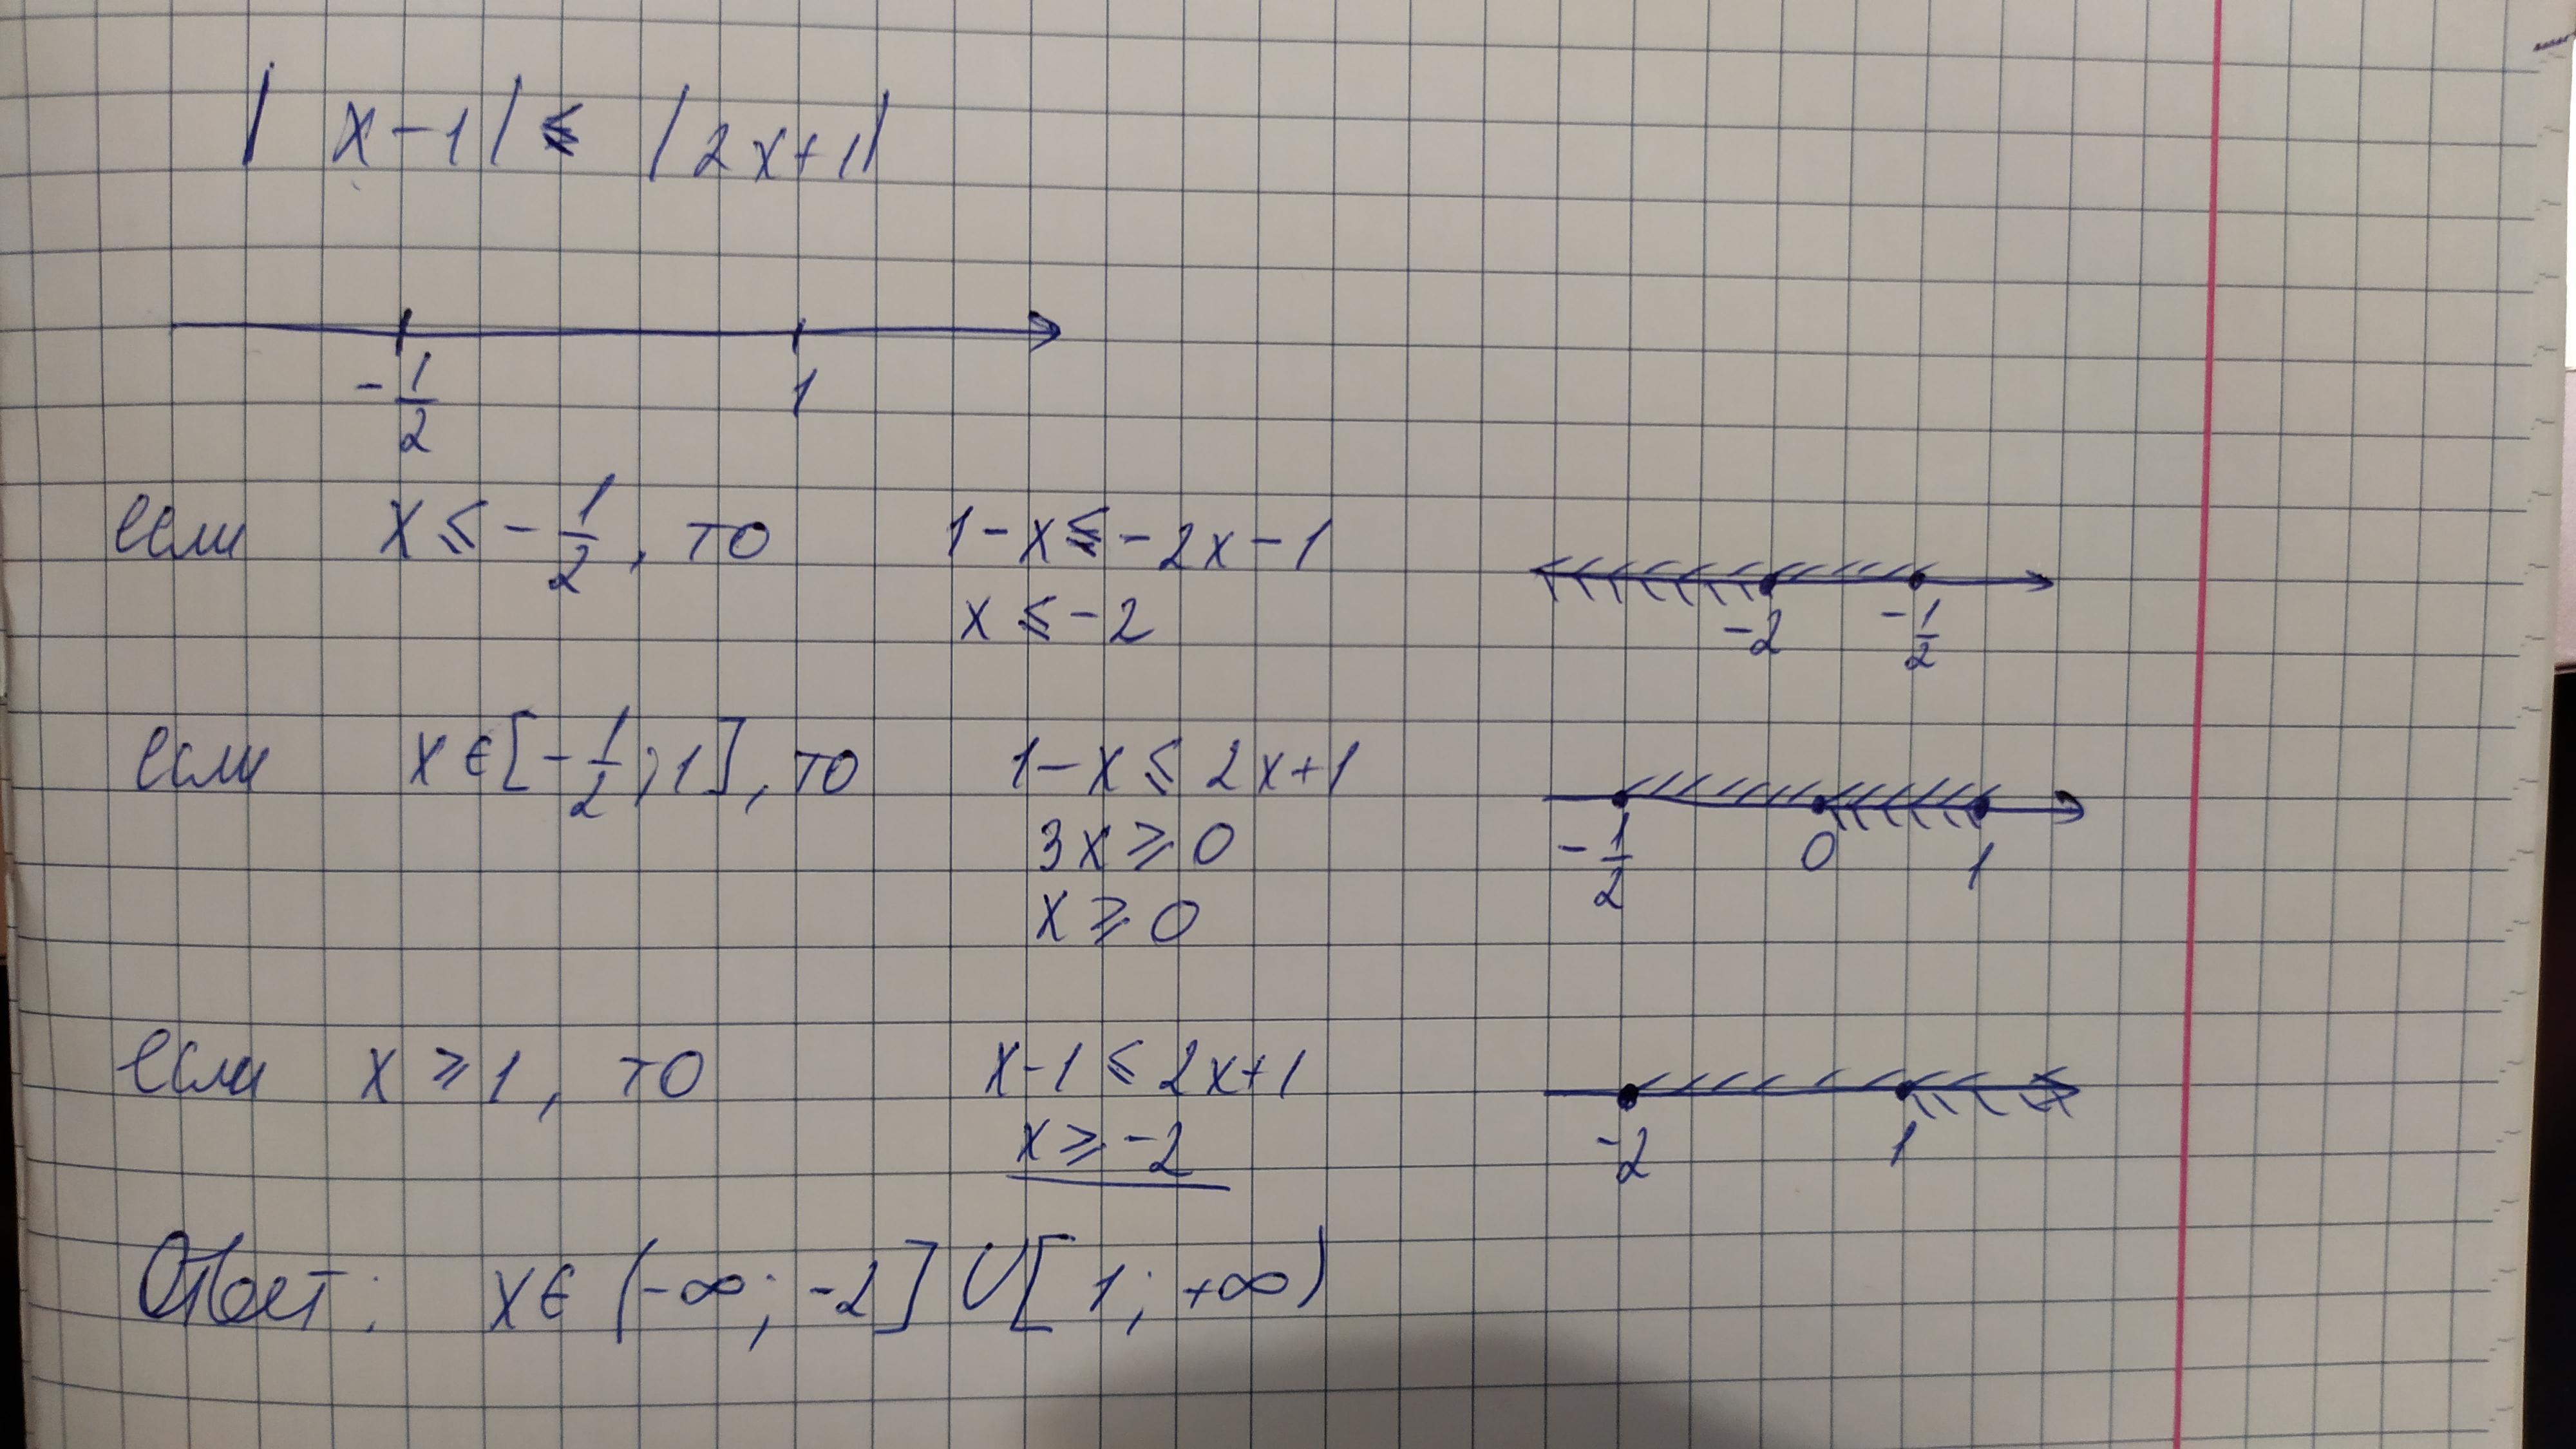 |x-1| ≤ |2x+1|
-1/2 1
если x ≤ -1/2, то 1-x ≤ -2x-1
x ≤ -2
-2 -1/2
если x ∈ [-1/2; 1], то 1-x ≤ 2x+1
3x ≥ 0
x ≥ 0
-1/2 0 1
если x ≥ 1, то x-1 ≤ 2x+1
x ≥ -2
-2 1
Ответ: x ∈ (-∞; -2] ∪ [1; +∞)